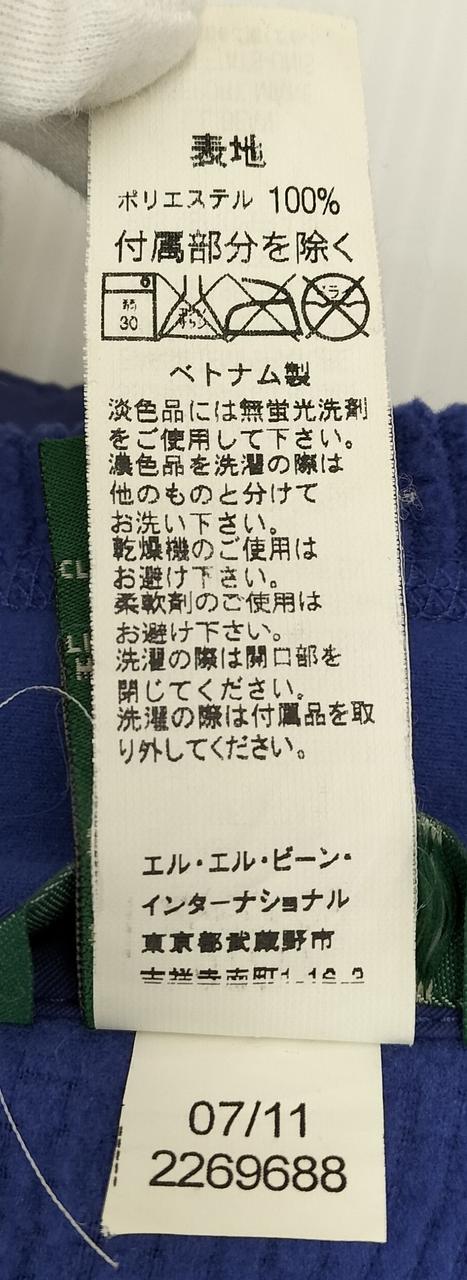 表地
ポリエステル 100%
付属部分を除く
弱
30
ベトナム製
淡色品には無蛍光洗剤
をご使用して下さい。
濃色品を洗濯の際は
他のものと分けて
お洗い下さい。
乾燥機のご使用は
お避け下さい。
柔軟剤のご使用は
お避け下さい。
洗濯の際は開口部を
閉じてください。
洗濯の際は付属品を取
り外してください。
エル・エル・ビーン・
インターナショナル
東京都武蔵野市
07/11
2269688